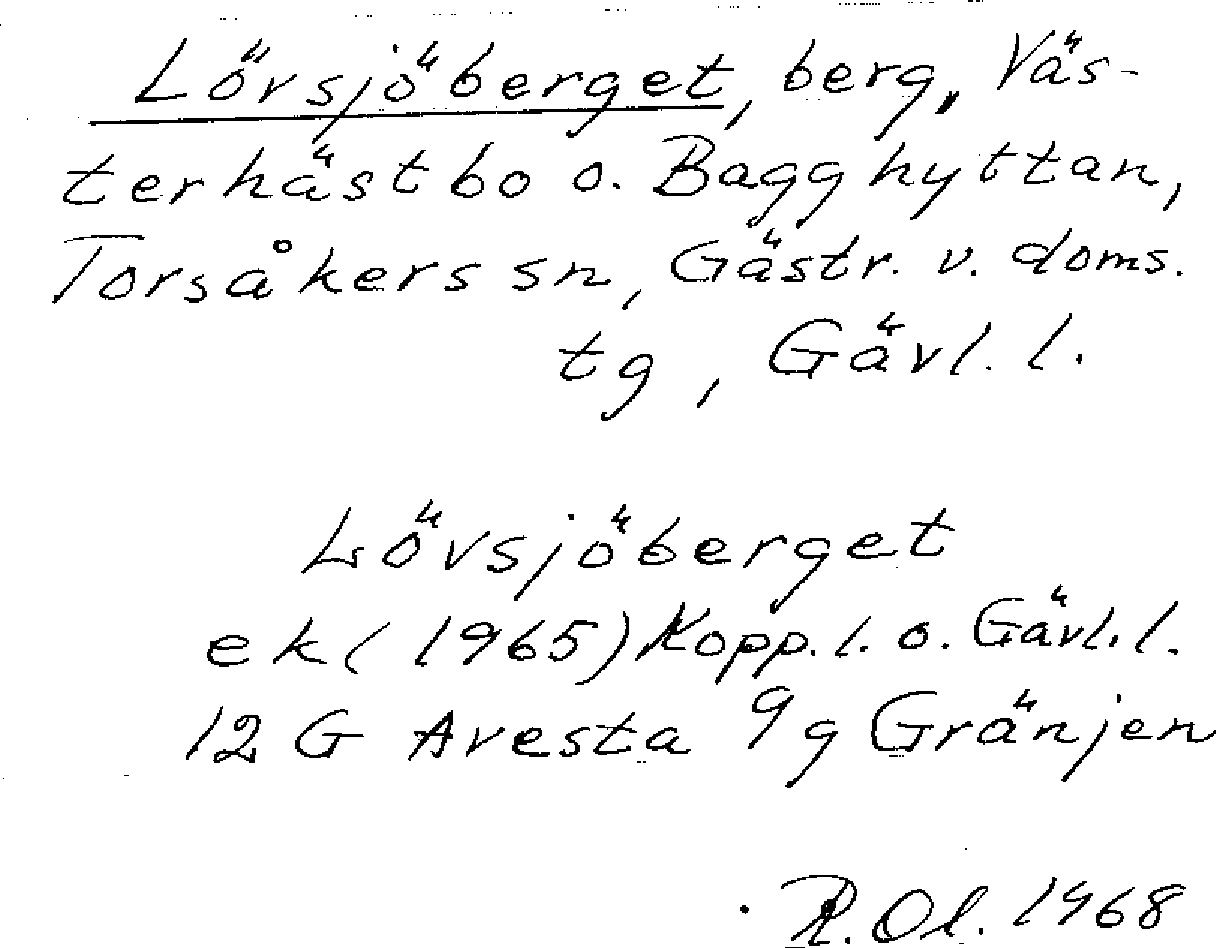 Lövsjöberget, berg, Väs-
terhästbo o. Bagghyttan,
Torsåkers sn, Gästr. v. doms.
tg, Gävl. l.
Lövsjöberget
ek (1965) Kopp. l. o. Gävl. l.
12 G Avesta 9g Gränjen
R. Ol. 1968